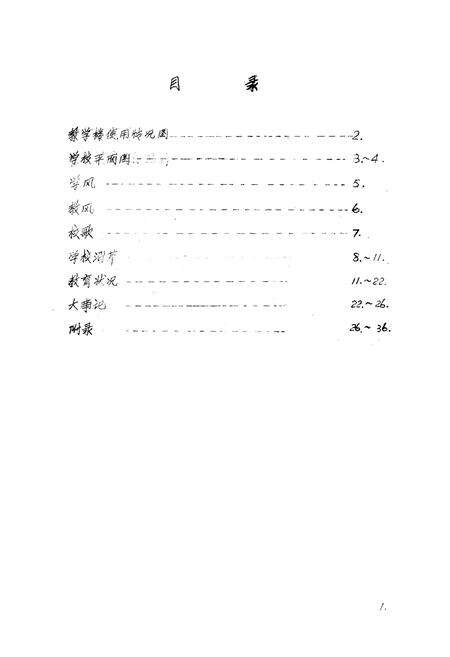 目 录
教学楼使用情况图 2.
学校平面图 3.~4.
学风 5.
教风 6.
校歌 7.
学校 8.~11.
教育状况 11.~22.
大事记 22.~26.
附录 26.~36.
1.